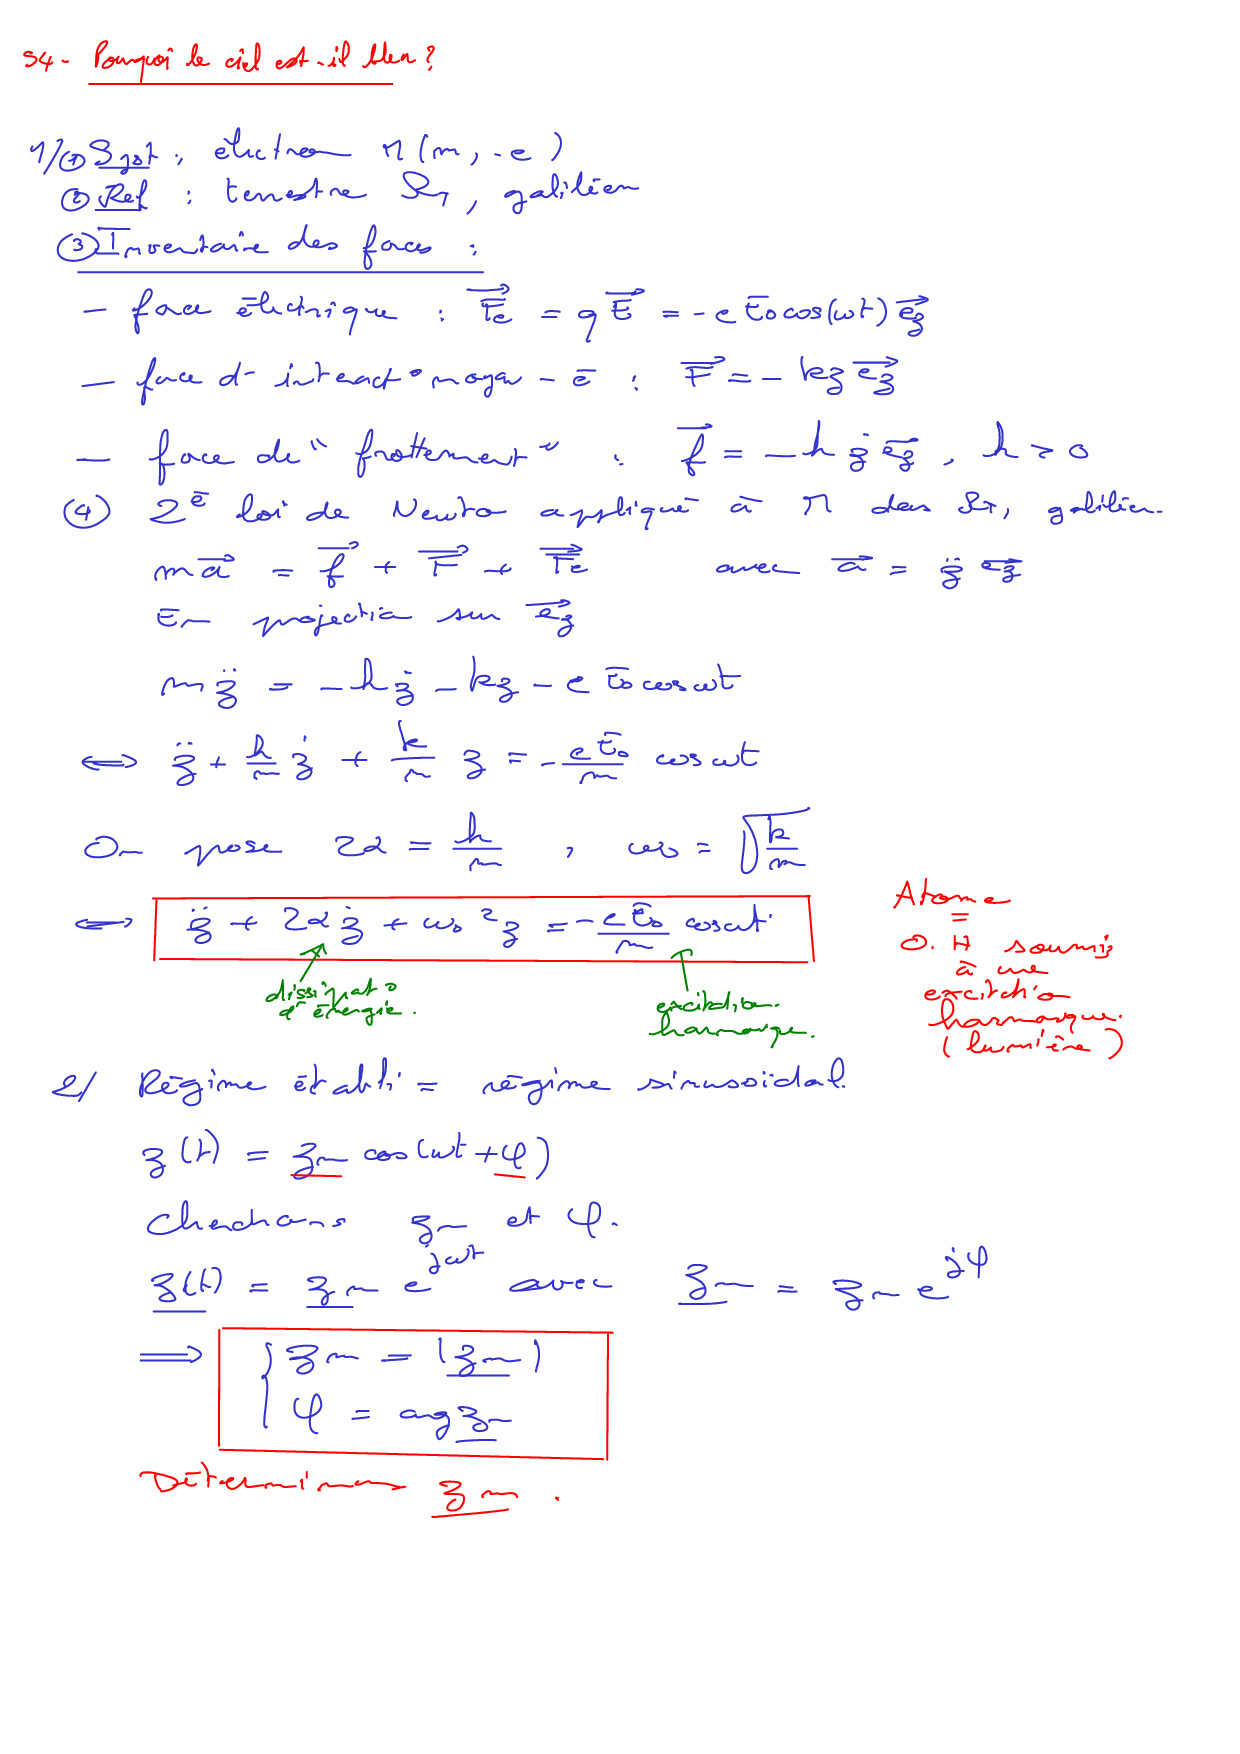 S4 - Pourquoi le ciel est-il bleu ?
1/ ① Syst : électron M(m, -e)
② Ref : terrestre R_T, galiléen
③ Inventaire des forces :
- force électrique : \vec{F_e} = q\vec{E} = -e E_0 cos(ωt) \vec{e_z}
- force d' interact° noyau - e⁻ : \vec{F} = - kz \vec{e_z}
- force de "frottement" : \vec{f} = - h ż \vec{e_z}, h > 0
④ 2è loi de Newton appliqué à M dans R_T, galiléen.
m\vec{a} = \vec{f} + \vec{F} + \vec{F_e} avec \vec{a} = z̈ \vec{e_z}
En projection sur \vec{e_z}
m z̈ = - h ż - kz - e E_0 cos ωt
⟺ z̈ + h/m ż + k/m z = - eE_0/m cos ωt
On pose 2α = h/m , ω_0 = √(k/m)
⟺ z̈ + 2α ż + ω_0² z = - eE_0/m cos ωt
dissipat°
d'énergie.
excitation
harmonique.
Atome
=
O. H soumis
à une
excitat°
harmonique.
(lumière)
2/ Régime établi = régime sinusoïdal.
z(t) = z_m cos(ωt + φ)
Cherchons z_m et φ.
\underline{z}(t) = \underline{z_m} e^{jωt} avec \underline{z_m} = z_m e^{jφ}
⟹ { z_m = |\underline{z_m}|
φ = arg \underline{z_m}
Déterminons \underline{z_m}.